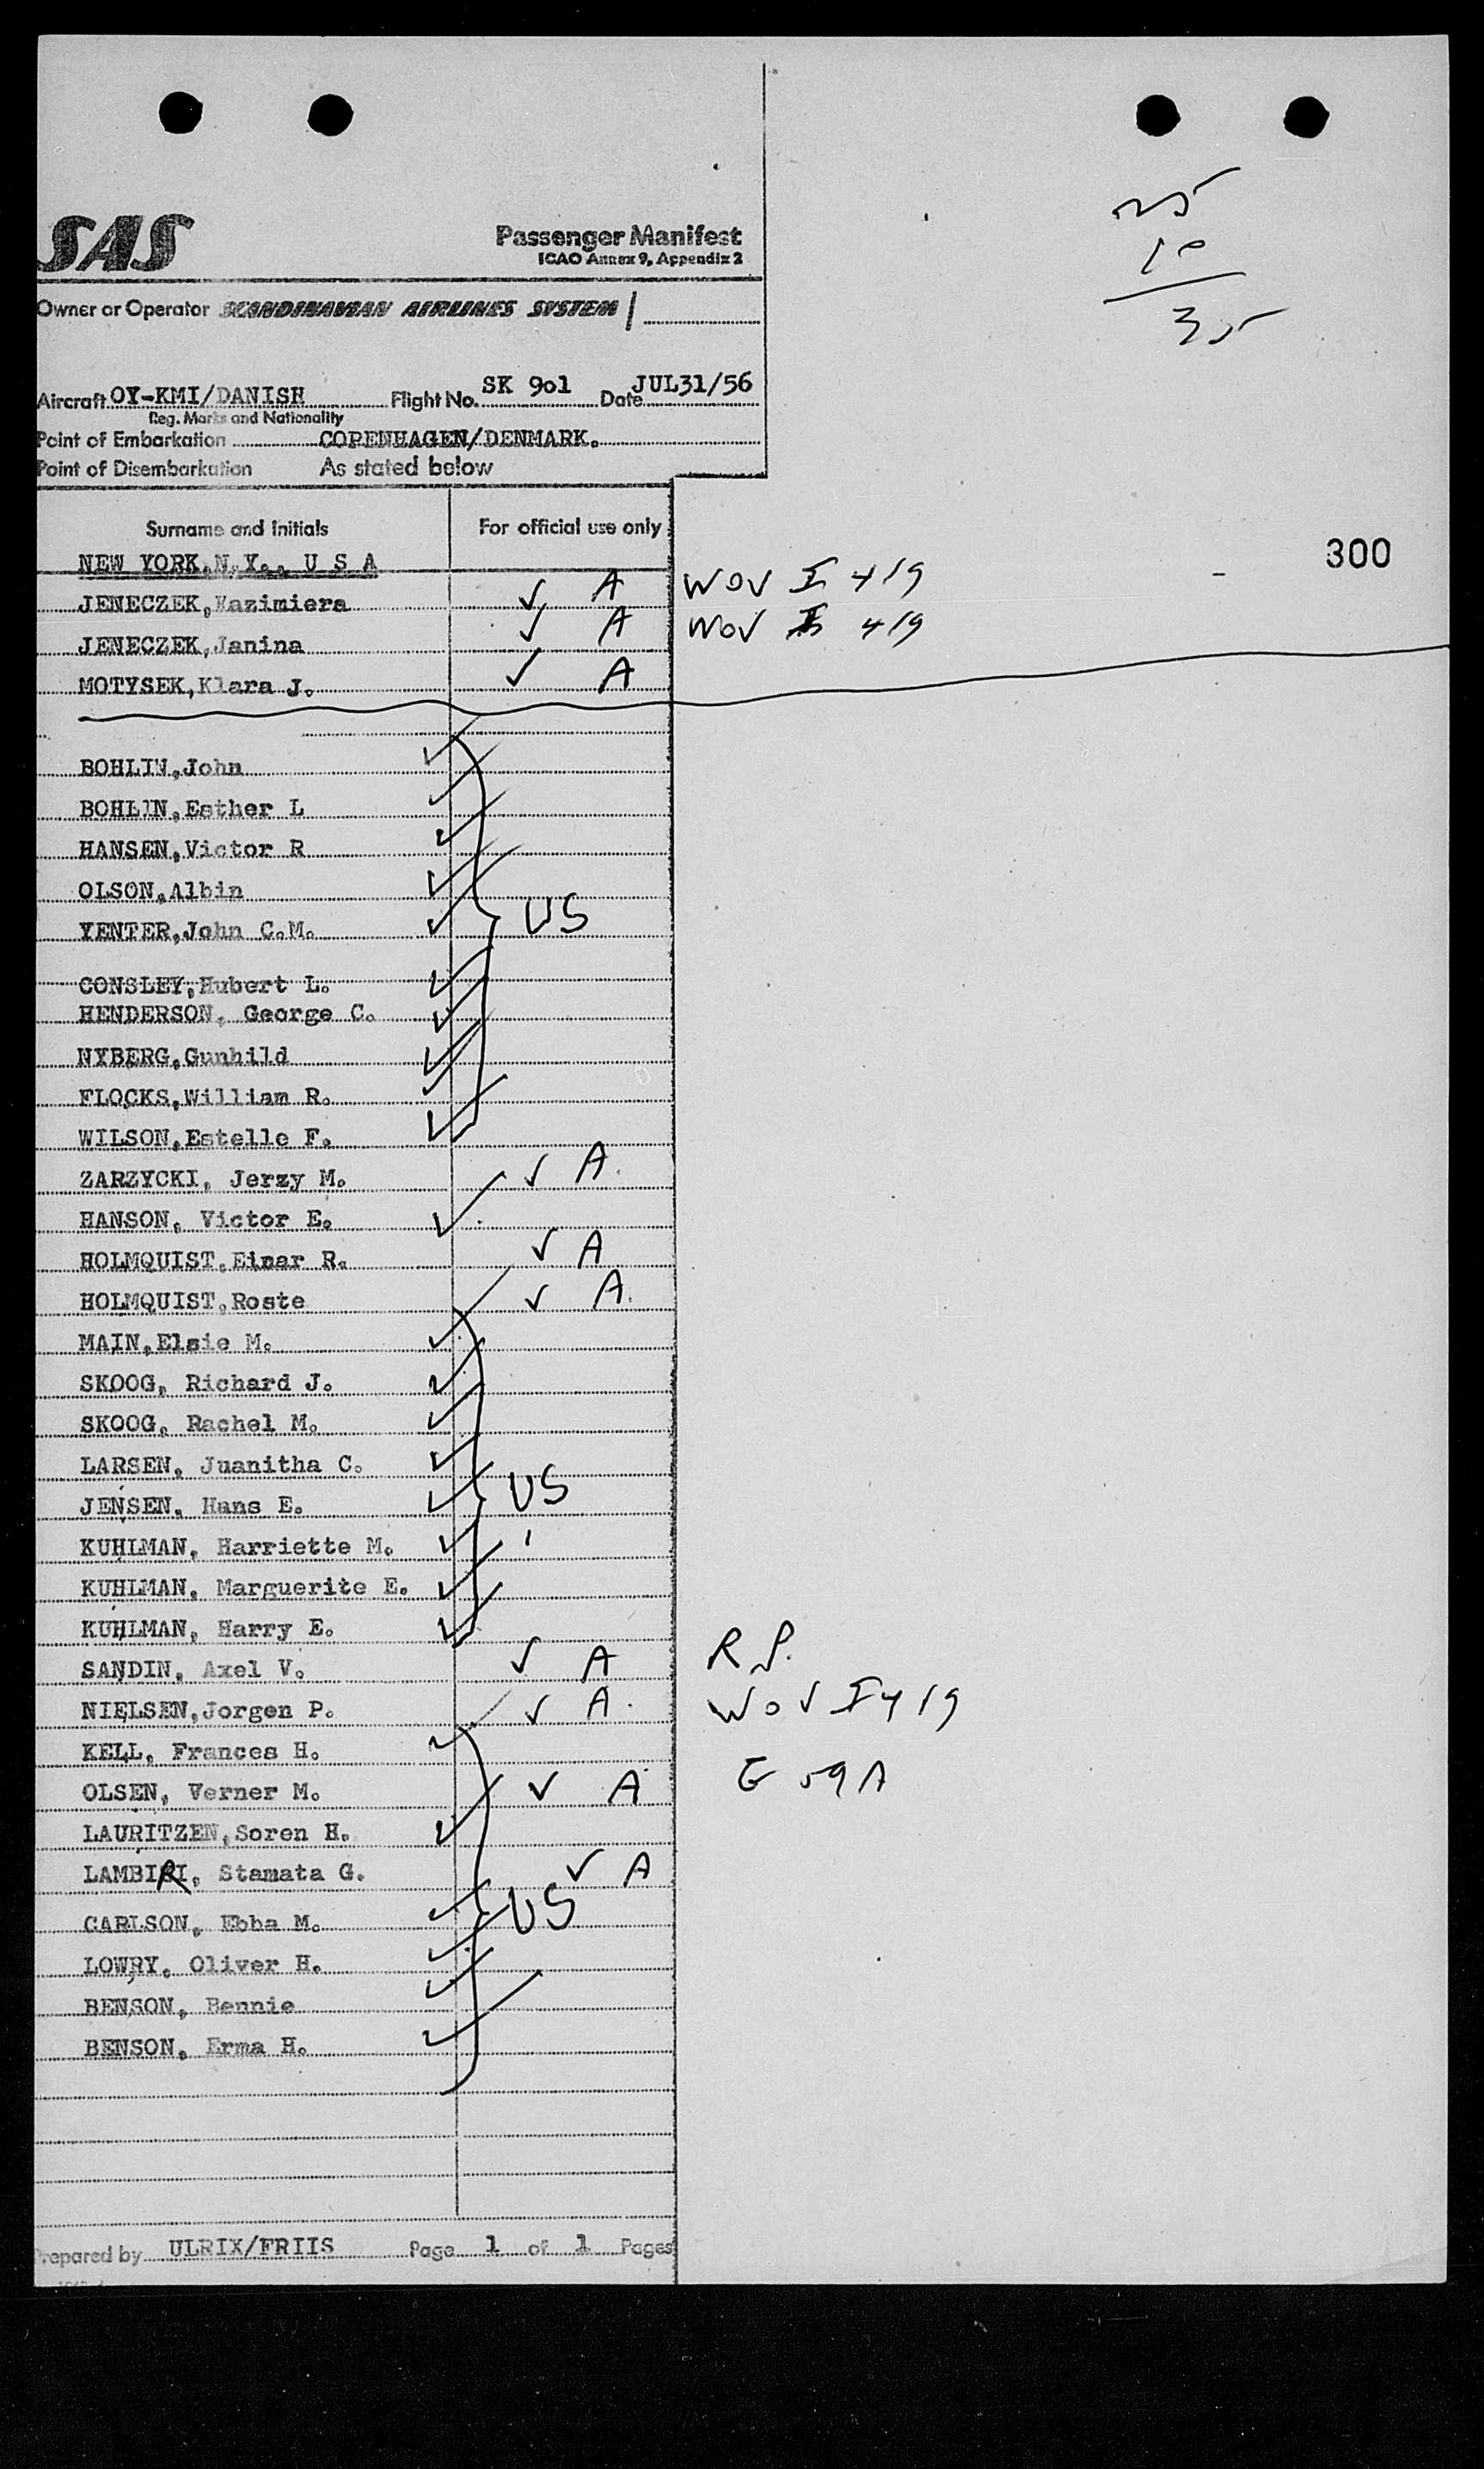 25
10
35
SAS
Passenger Manifest
ICAO Annex 9, Appendix 2
Owner or Operator SCANDINAVIAN AIRLINES SYSTEM
Aircraft OY-KMI/DANISH Flight No. SK 9o1 Date JUL31/56
Reg. Marks and Nationality
Point of Embarkation COPENHAGEN/DENMARK.
Point of Disembarkation As stated below
Surname and Initials For official use only
300
NEW YORK,N.Y., U S A
JENECZEK,Kazimiera ✓ A WOV I 419
JENECZEK,Janina ✓ A WOV I 419
MOTYSEK,Klara J. ✓ A
BOHLIN,John
BOHLIN,Esther L
HANSEN,Victor R
OLSON,Albin
YENTER,John C.M. US
CONSLEY,Hubert L.
HENDERSON, George C.
NYBERG,Gunhild
FLOCKS,William R.
WILSON,Estelle F.
ZARZYCKI, Jerzy M. ✓ A.
HANSON, Victor E.
HOLMQUIST,Einar R. ✓ A
HOLMQUIST,Roste ✓ A.
MAIN,Elsie M.
SKOOG, Richard J.
SKOOG, Rachel M.
LARSEN, Juanitha C.
JENSEN, Hans E. US
KUHLMAN, Harriette M.
KUHLMAN, Marguerite E.
KUHLMAN, Harry E.
SANDIN, Axel V. ✓ A R.P.
NIELSEN,Jorgen P. ✓ A. WOV I 419
KELL, Frances H.
OLSEN, Verner M. ✓ A E 59A
LAURITZEN,Soren H.
LAMBIRI, Stamata G. ✓ A
CARLSON, Ebba M. US
LOWRY, Oliver H.
BENSON, Bennie
BENSON, Erma H.
Prepared by ULRIX/FRIIS Page 1 of 1 Pages